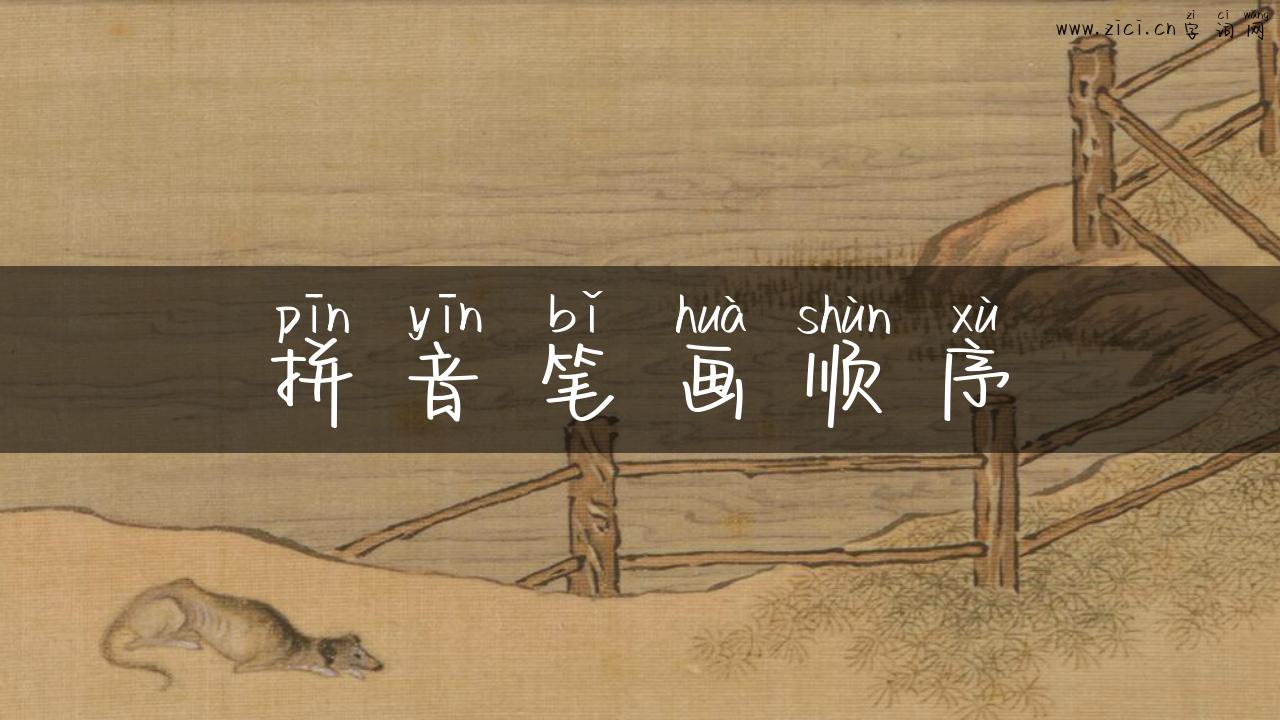 zì cí wǎng
www.zici.cn字词网
pīn yīn bǐ huà shùn xù
拼音笔画顺序